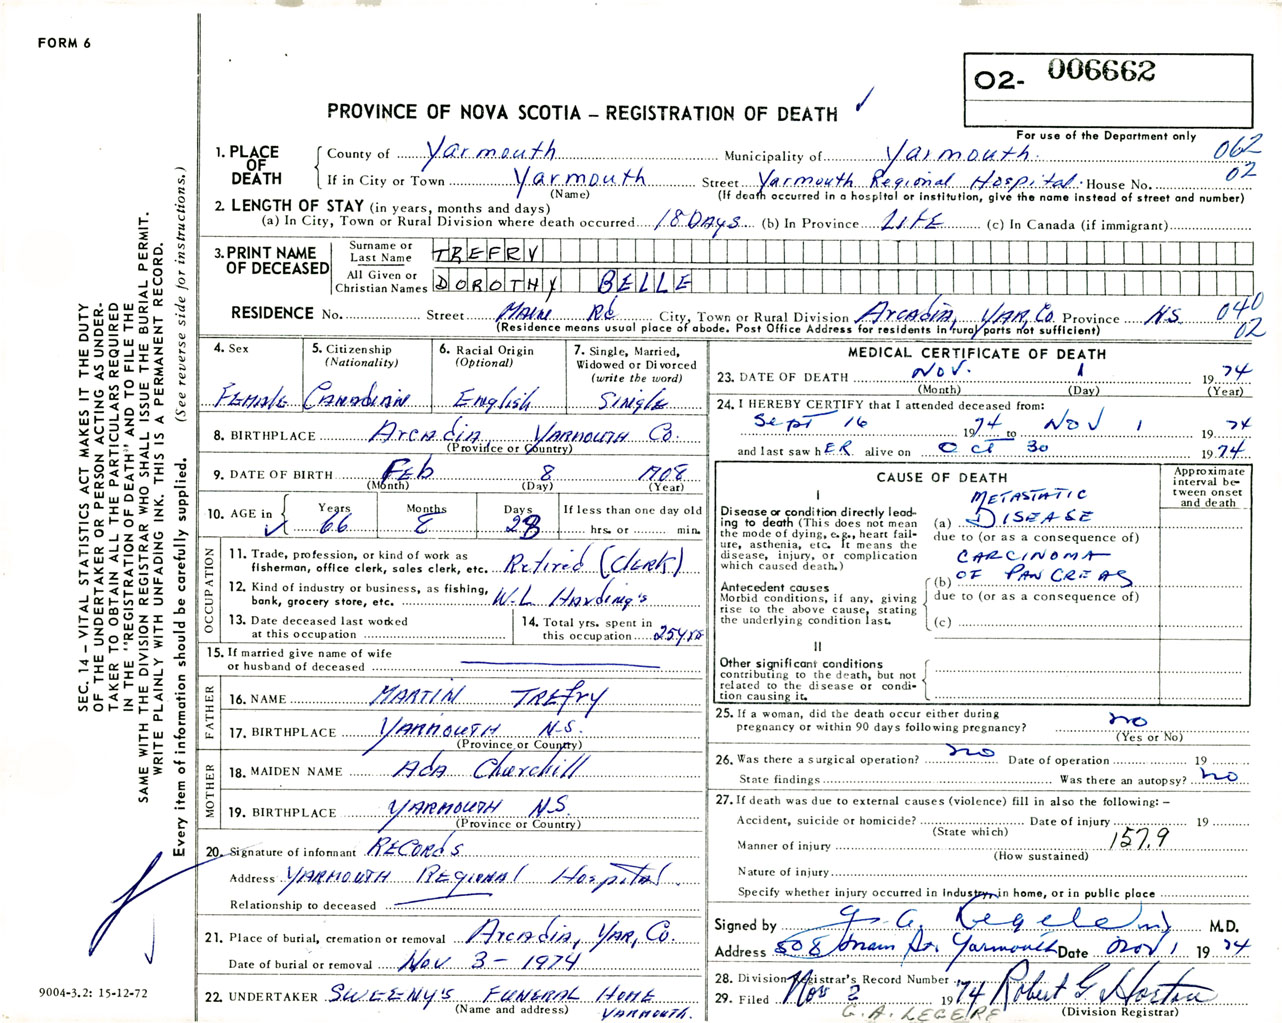 FORM 6
O2- 006662
PROVINCE OF NOVA SCOTIA – REGISTRATION OF DEATH
For use of the Department only
062
02
1. PLACE OF DEATH
County of Yarmouth Municipality of Yarmouth
If in City or Town Yarmouth Street Yarmouth Regional Hospital House No.
(Name) (If death occurred in a hospital or institution, give the name instead of street and number)
2. LENGTH OF STAY (in years, months and days)
(a) In City, Town or Rural Division where death occurred 18 DAYS (b) In Province LIFE (c) In Canada (if immigrant)
3. PRINT NAME OF DECEASED
Surname or Last Name TREFRY
All Given or Christian Names DOROTHY BELLE
RESIDENCE No. Street MAIN Rd City, Town or Rural Division Arcadia, YAR, Co. Province N.S. 040
02
(Residence means usual place of abode. Post Office Address for residents in rural parts not sufficient)
4. Sex
Female
5. Citizenship
(Nationality)
Canadian
6. Racial Origin
(Optional)
English
7. Single, Married,
Widowed or Divorced
(write the word)
Single
8. BIRTHPLACE Arcadia Yarmouth Co.
(Province or Country)
9. DATE OF BIRTH Feb 8 1908
(Month) (Day) (Year)
10. AGE in
Years Months Days If less than one day old
66 8 hrs. or min.
OCCUPATION
11. Trade, profession, or kind of work as
fisherman, office clerk, sales clerk, etc. Retired (Clerk)
12. Kind of industry or business, as fishing,
bank, grocery store, etc. W.L Harding's
13. Date deceased last worked
at this occupation
14. Total yrs. spent in
this occupation 25 yrs
15. If married give name of wife
or husband of deceased
FATHER
16. NAME MARTIN TREFRY
17. BIRTHPLACE YARMOUTH N.S.
(Province or Country)
MOTHER
18. MAIDEN NAME Ada Churchill
19. BIRTHPLACE YARMOUTH N.S.
(Province or Country)
20. Signature of informant RECORDS
Address YARMOUTH REGIONAL Hospital
Relationship to deceased
21. Place of burial, cremation or removal Arcadia, YAR, Co.
Date of burial or removal Nov. 3 - 1974
22. UNDERTAKER SWEENY'S FUNERAL HOME
(Name and address) YARMOUTH.
MEDICAL CERTIFICATE OF DEATH
23. DATE OF DEATH Nov. 1 1974
(Month) (Day) (Year)
24. I HEREBY CERTIFY that I attended deceased from:
Sept 16 1974 to Nov 1 1974
and last saw hER alive on Oct 30 1974
CAUSE OF DEATH
Approximate
interval be-
tween onset
and death
I
Disease or condition directly lead-
ing to death (This does not mean
the mode of dying, e.g., heart fail-
ure, asthenia, etc. It means the
disease, injury, or complication
which caused death.)
METASTATIC
(a) DISEASE
due to (or as a consequence of)
CARCINOMA
(b) OF PANCREAS
due to (or as a consequence of)
(c)
Antecedent causes
Morbid conditions, if any, giving
rise to the above cause, stating
the underlying condition last.
II
Other significant conditions
contributing to the death, but not
related to the disease or condi-
tion causing it.
25. If a woman, did the death occur either during
pregnancy or within 90 days following pregnancy? no
(Yes or No)
26. Was there a surgical operation? no Date of operation 19
State findings Was there an autopsy? no
27. If death was due to external causes (violence) fill in also the following: –
Accident, suicide or homicide? Date of injury 19
(State which)
157.9
Manner of injury
(How sustained)
Nature of injury
Specify whether injury occurred in industry, in home, or in public place
Signed by M.D.
Address 508 Main St. Yarmouth Date Nov 1 1974
28. Division Registrar's Record Number
29. Filed Nov 2 1974 Robert G Horton
(Division Registrar)
G. A. LEGERE
SEC. 14 – VITAL STATISTICS ACT MAKES IT THE DUTY
OF THE UNDERTAKER OR PERSON ACTING AS UNDER-
TAKER TO OBTAIN ALL THE PARTICULARS REQUIRED
IN THE "REGISTRATION OF DEATH" AND TO FILE THE
SAME WITH THE DIVISION REGISTRAR WHO SHALL ISSUE THE BURIAL PERMIT.
WRITE PLAINLY WITH UNFADING INK. THIS IS A PERMANENT RECORD.
Every item of information should be carefully supplied. (See reverse side for instructions.)
9004-3.2: 15-12-72